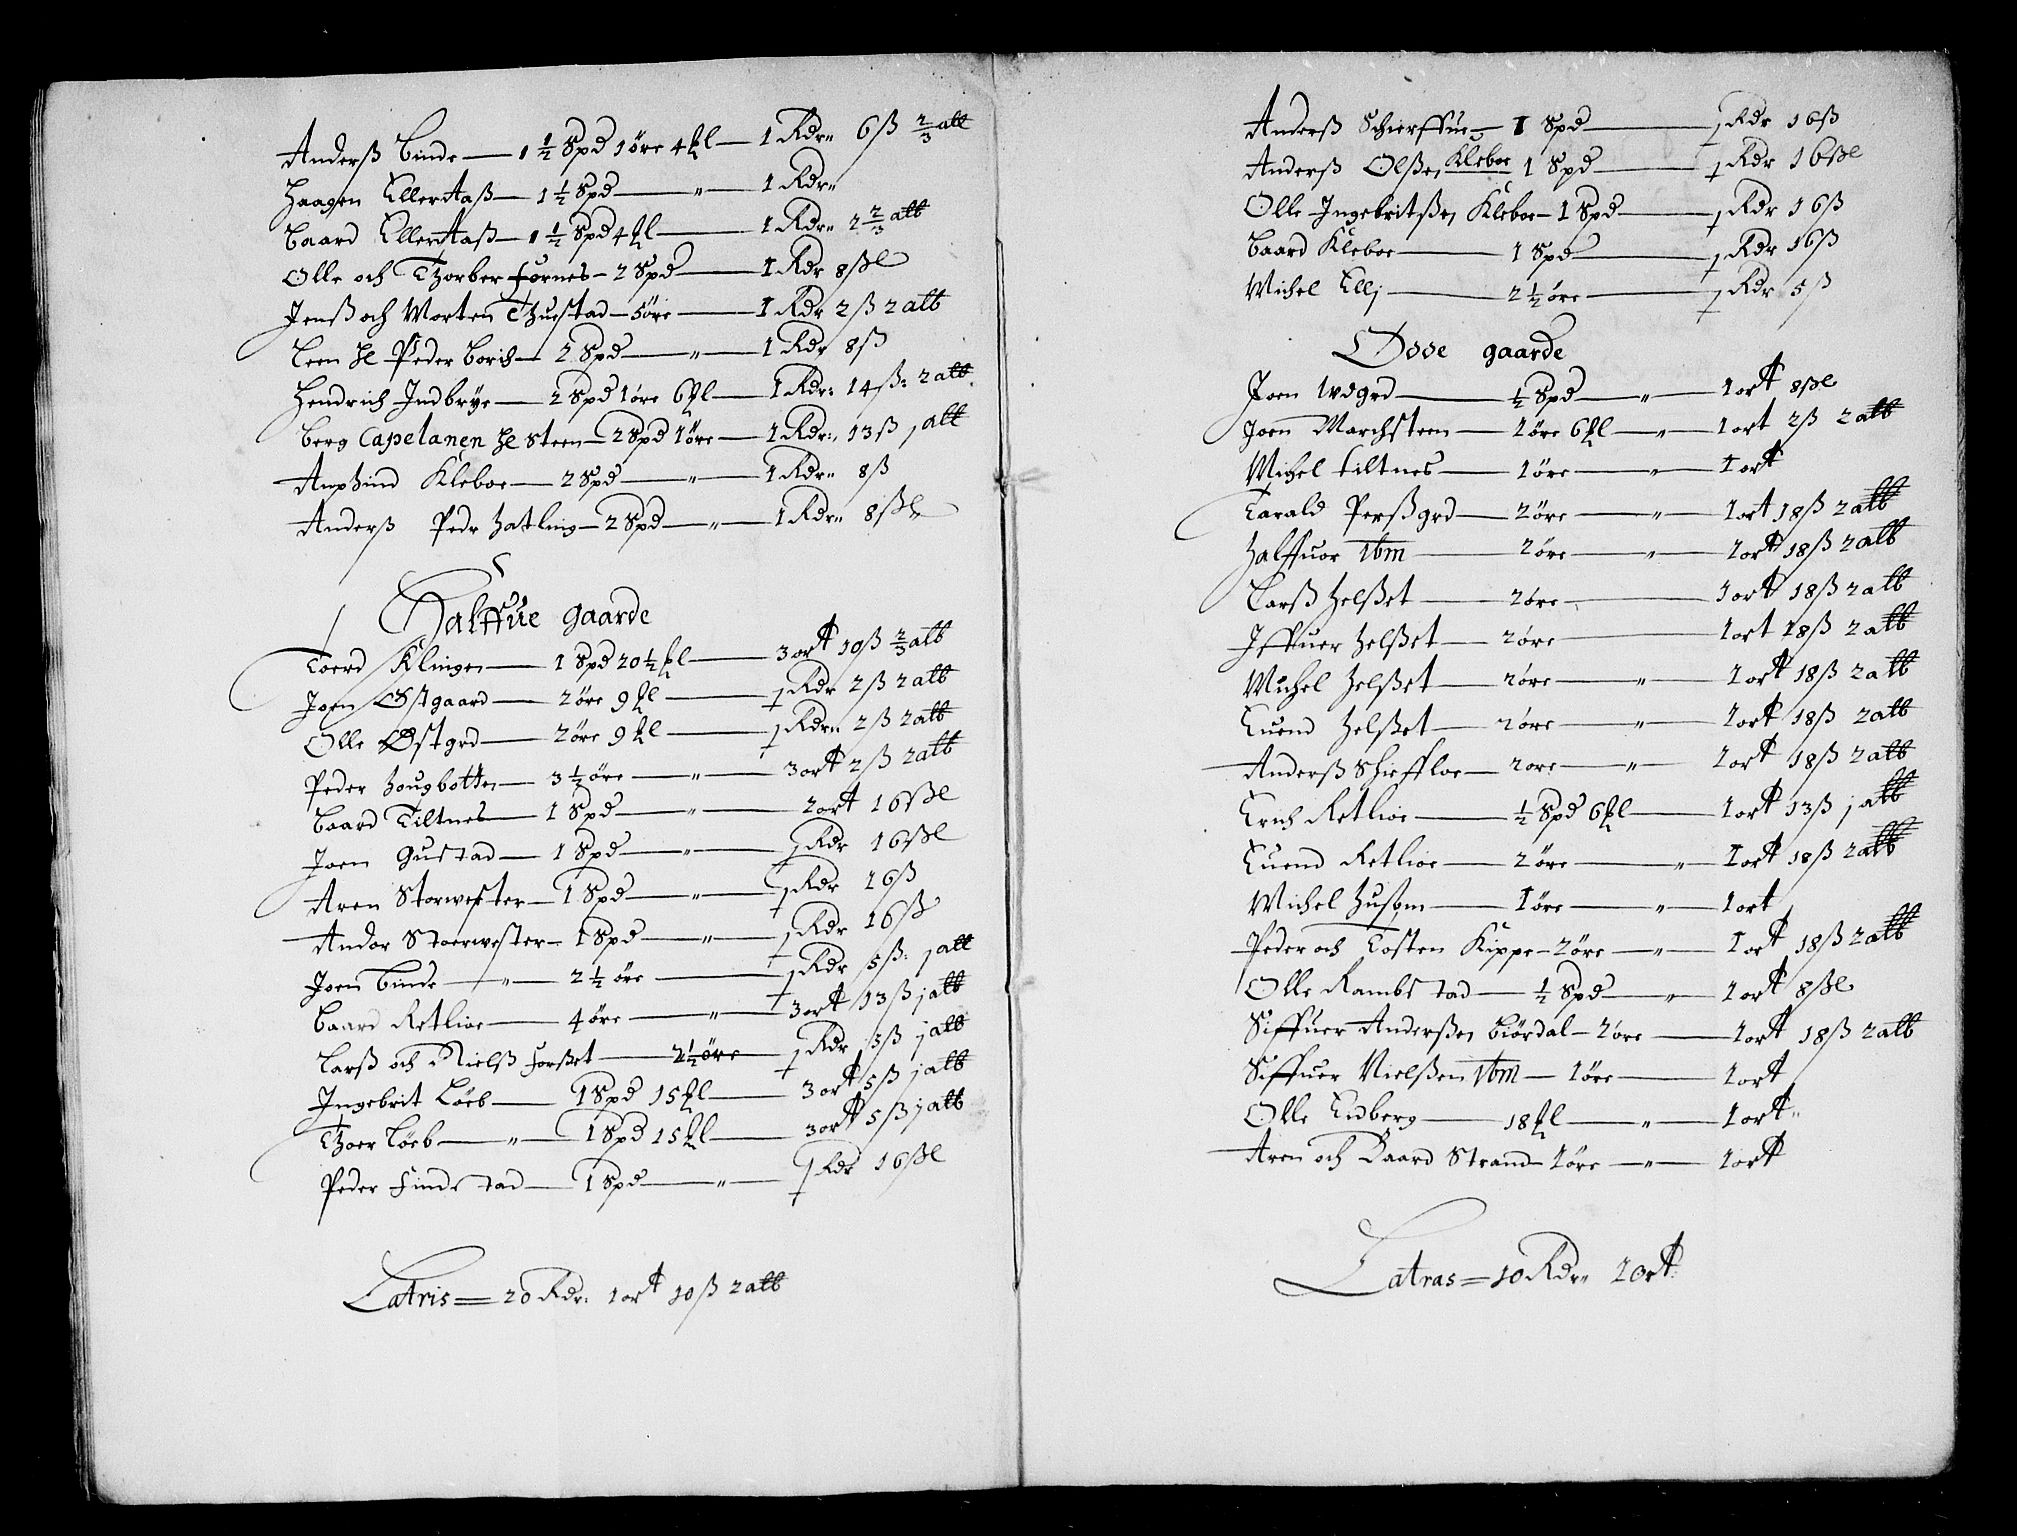 Anderß Binde — 1 1/2 Spd 1 öre 4 ₰l — 1 Rdr 6 ß 2/3 alb
Haagen Ellertaß — 1 1/2 Spd — " — 1 Rdr"
Baard Ellertaß — 1 1/2 Spd 4 ₰l — 1 Rdr" 2 2/3 alb
Olle och Thorber Fornes — 2 Spd — 1 Rdr 8 ßl
Jenß och Morten Thustad — 5 öre — 1 Rdr 2 ß 2 alb
Leen He Peder Borich — 2 Spd — " — 1 Rdr 8 ß
Hendrich Indbrye — 2 Spd 1 öre 6 ₰l — 1 Rdr: 14 ß: 2 alb
Berg Capelanen He Steen — 2 Spd 1 öre — 1 Rdr: 13 ß j alb
Anphind Kleboe — 2 Spd — " — 1 Rdr" 8 ß
Anderß Pedr Hatling — 2 Spd — " — 1 Rdr" 8 ßl
Halffue gaarde
Toerd Klingen — 1 Spd 20 1/2 ₰l — 3 ort 10 ß 2/3 alb
Joen Østgaard — 2 öre 9 ₰l — j Rdr 2 ß 2 alb
Olle Østgrd — 2 öre 9 ₰l — j Rdr" 2 ß 2 alb
Peder Hougbotten — 3 1/2 öre — " — 3 ort 2 ß 2 alb
Baard Tiltnes — 1 Spd — " — 2 ort 16 ßl
Joen Gustad — 1 Spd — " — j Rdr 16 ßl
Aren Storwester — 1 Spd — " — j Rdr 16 ß
Andor Stoerwester — 1 Spd — " — j Rdr 16 ß
Joen Binde — " — 2 1/2 öre — j Rdr 5 ß: j alb
Baard Retlioe — 4 öre — " — 3 ort 13 ß j alb
Larß och Nielß Forßet — 2 1/2 öre — j Rdr 5 ß j alb
Ingebrit Löeb — 1 Spd 15 ₰l — 3 ort 5 ß j alb
Thoer Löeb — " — 1 Spd 15 ₰l — 3 ort 5 ß j alb
Peder Findstad — 1 Spd — " — j Rdr 16 ßl
Latris = 20 Rdr: 1 ort 10 ß 2 alb
Anderß Schierffue — 1 Spd — j Rdr 16 ß
Anderß Olßen Kleboe 1 Spd — j Rdr 16 ßl
Olle Ingebritßen Kleboe — 1 Spd — j Rdr 16 ß
Baard Kleboe — 1 Spd — j Rdr 16 ß
Michel Ellj — 2 1/2 öre — j Rdr 5 ß
Ødde gaarde
Joen Wdgrd — 1/2 Spd — " — 1 ort 8 ßl
Joen Marchsteen — 1 öre 6 ₰l — " — 1 ort 2 ß 2 alb
Michel Tiltnes — 1 öre — " — 1 ort
Tarald Perßgrd — 2 öre — " — 1 ort 18 ß 2 alb
Halffuor Ibm — 2 öre — " — 1 ort 18 ß 2 alb
Larß Helßet — 2 öre — 1 ort 18 ß 2 alb
Iffuer Helßet — 2 öre — 1 ort 18 ß 2 alb
Michel Helßet — 2 öre — " — 1 ort 18 ß 2 alb
Euend Helßet — 2 öre — " — 1 ort 18 ß 2 alb
Anderß Schieffloe — 2 ore — " — 1 ort 18 ß 2 alb
Erich Retlioe — 1/2 Spd 6 ₰l — 1 ort 13 ß j alb
Euend Retlioe — 2 öre — " — 1 ort 18 ß 2 alb
Michel Husbm — 1 öre — " — 1 ort
Peder och Tosten Kippe — 2 öre — " — 1 ort 18 ß 2 alb
Olle Rambstad — 1/2 Spd — " — 1 ort 8 ßl
Siffuer Anderßen Biördal — 2 öre — 1 ort 18 ß 2 alb
Siffuer Nielßen Ibm — 1 öre — 1 ort
Olle Eidberg — 18 ₰l — " — 1 ort"
Aren och Baard Strand — 1 öre — " — 1 ort
Latras = 10 Rdr" 2 ort